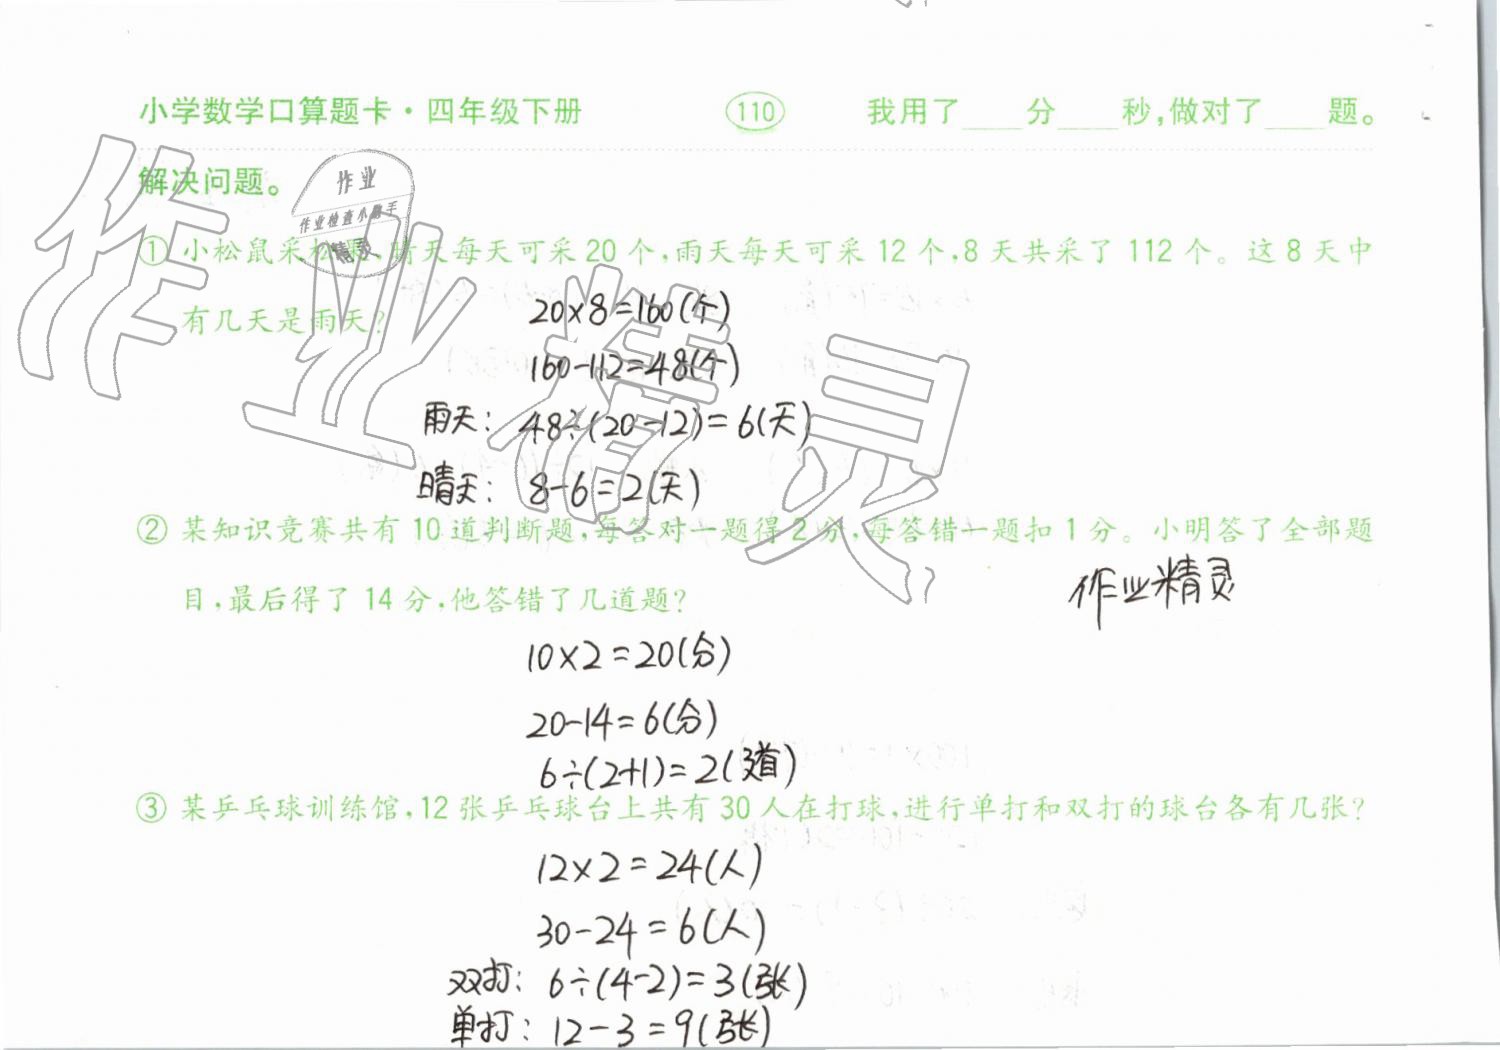 小学数学口算题卡·四年级下册 110 我用了____分____秒,做对了____题。
解决问题。
作业
作业检查小助手
精灵
① 小松鼠采松果,晴天每天可采20个,雨天每天可采12个,8天共采了112个。这8天中
有几天是雨天?
20×8=160(个)
160-112=48(个)
雨天: 48÷(20-12)=6(天)
晴天: 8-6=2(天)
作业精灵
② 某知识竞赛共有10道判断题,每答对一题得2分,每答错一题扣1分。小明答了全部题
目,最后得了14分,他答错了几道题?
作业精灵
10×2=20(分)
20-14=6(分)
6÷(2+1)=2(道)
③ 某乒乓球训练馆,12张乒乓球台上共有30人在打球,进行单打和双打的球台各有几张?
12×2=24(人)
30-24=6(人)
双打: 6÷(4-2)=3(张)
单打: 12-3=9(张)